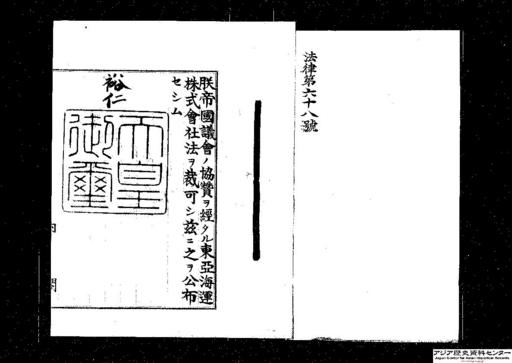 法律第六十八號
朕帝國議會ノ協贊ヲ經タル東亞海運
株式會社法ヲ裁可シ茲ニ之ヲ公布
セシム
裕仁
天皇
御璽
内閣
アジア歴史資料センター
Japan Center for Asian Historical Records